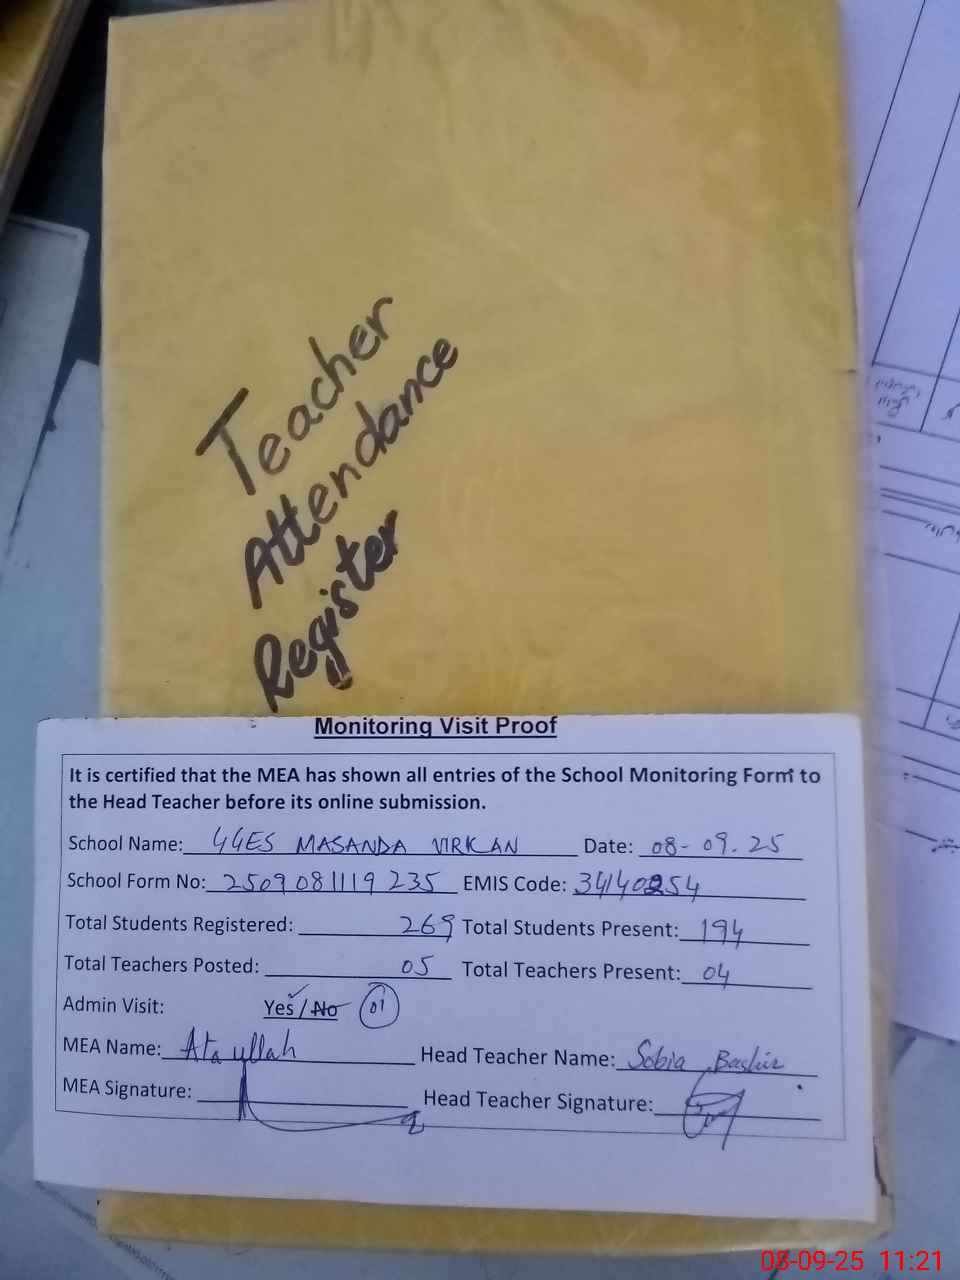 Teacher
Attendance
Register
Monitoring Visit Proof
It is certified that the MEA has shown all entries of the School Monitoring Form to
the Head Teacher before its online submission.
School Name: GGES MASANDA VIRKAN Date: 08-09.25
School Form No: 2509081119235 EMIS Code: 34140254
Total Students Registered: 269 Total Students Present: 194
Total Teachers Posted: 05 Total Teachers Present: 04
Admin Visit: Yes/No 01
MEA Name: Ataullah Head Teacher Name: Sobia Bashir
MEA Signature: Head Teacher Signature:
08-09-25 11:21